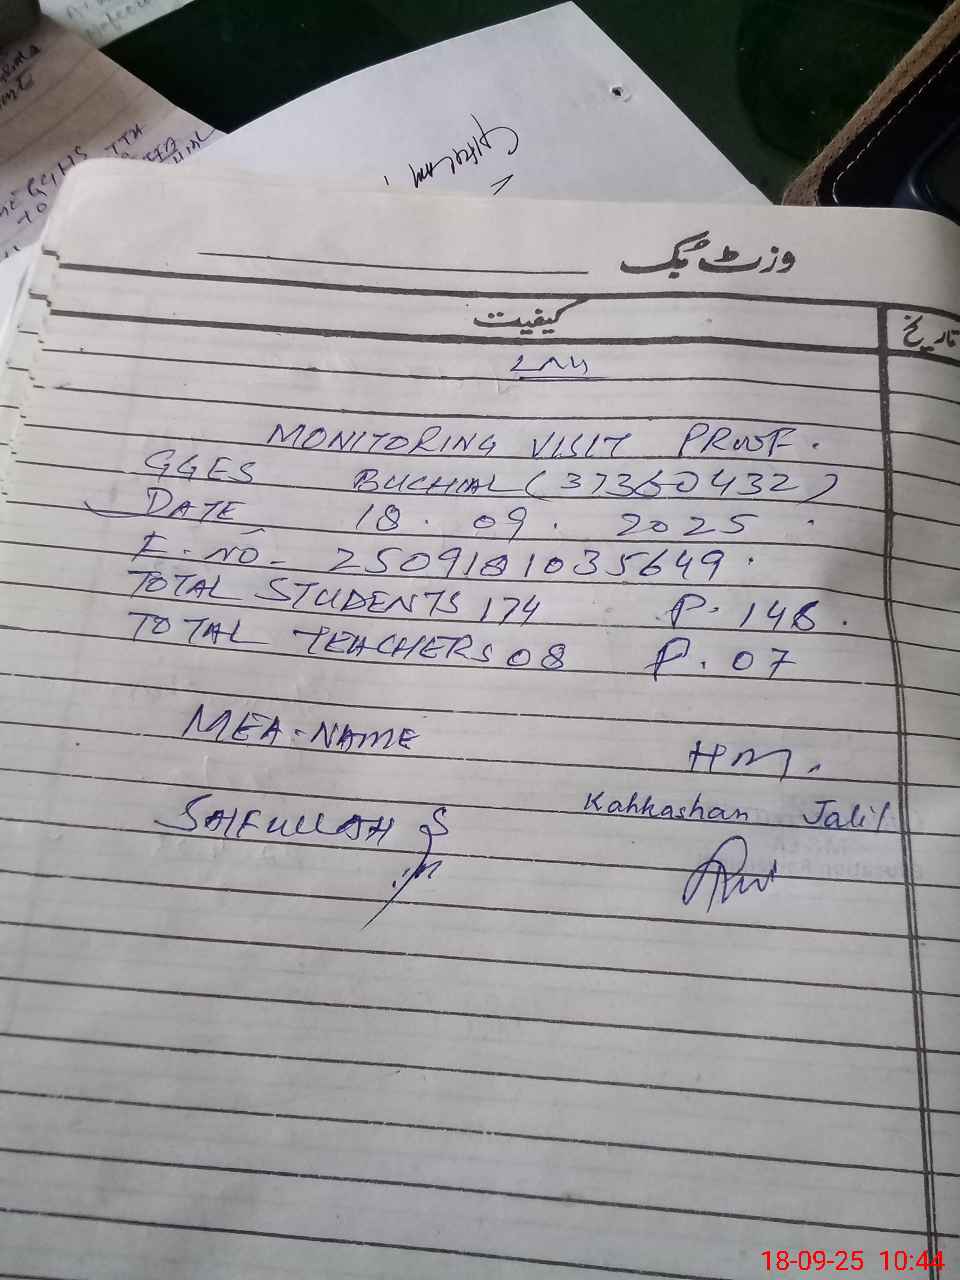 وزٹ بک
کیفیت
تاریخ
۷۸۶
MONITORING VISIT PROOF.
GGES BUCHIAL (37360432)
DATE 18.09.2025
E.NO- 2509181035649.
TOTAL STUDENTS 174 P. 148.
TOTAL TEACHERS 08 P. 07
MEA-NAME
HM.
SAIFULLAH S
Kahkashan Jalil
18-09-25 10:44